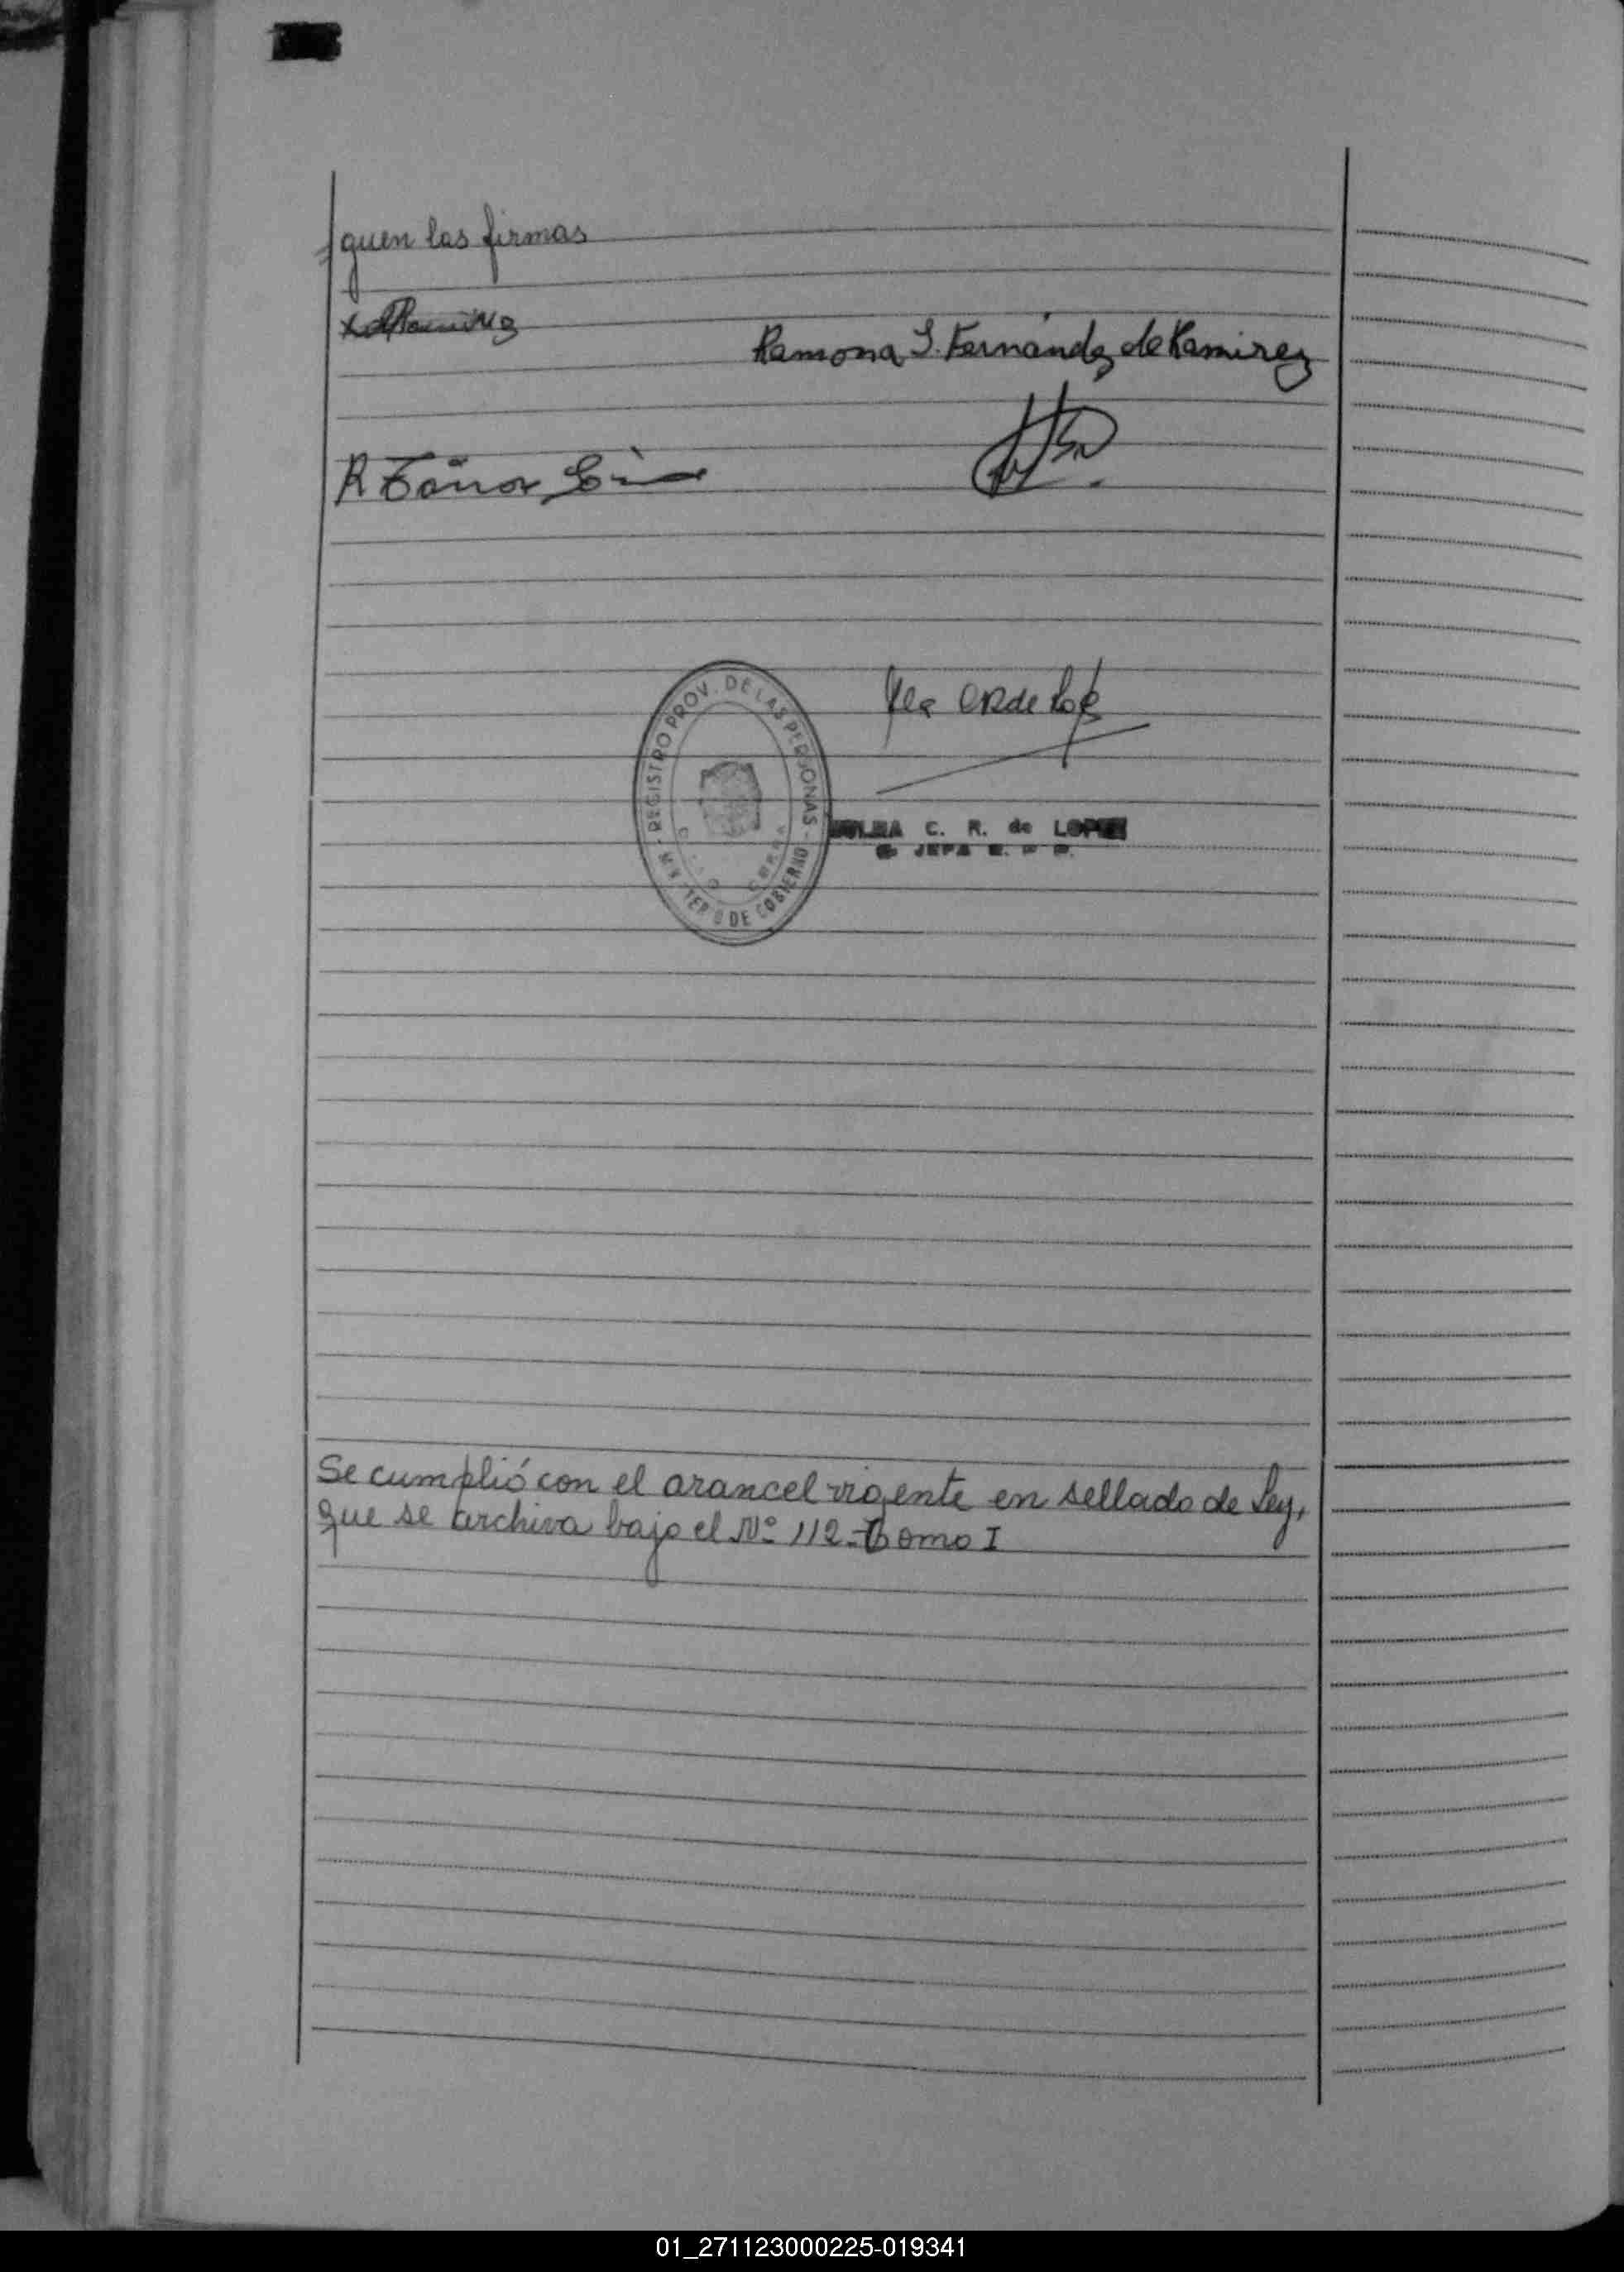 guen las firmas
Ramirez
Ramona I. Fernández de Ramirez
R
REGISTRO PROV. DE LAS PERSONAS
DE GOBIERNO
C. R. de LOPEZ
JEFA
Se cumplió con el arancel vigente en sellado de Ley,
que se archiva bajo el Nº 112-Tomo I
01_271123000225-019341